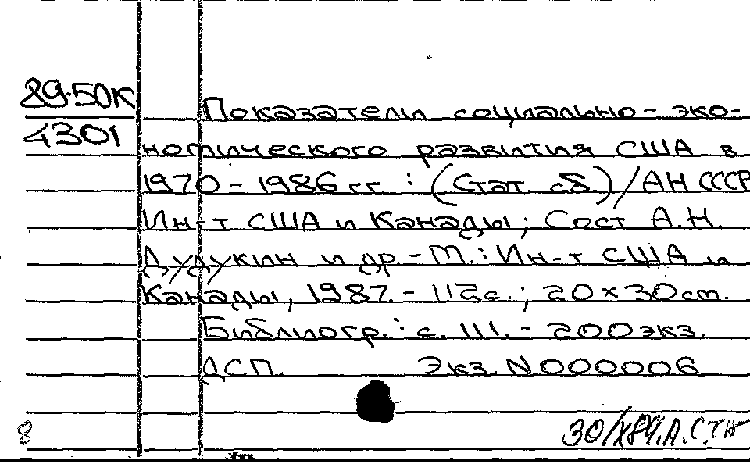 89-50К
4301
Показатели социально-эко-
номического развития США в
1970-1986 гг.: (Стат. сб)/АН СССР
Ин-т США и Канады; Сост А.Н.
Дудукин и др.-М.: Ин-т США и
Канады, 1987.-112с.; 20×30см.
Библиогр.: с. 111.-200экз.
ДСП. Экз. N000006